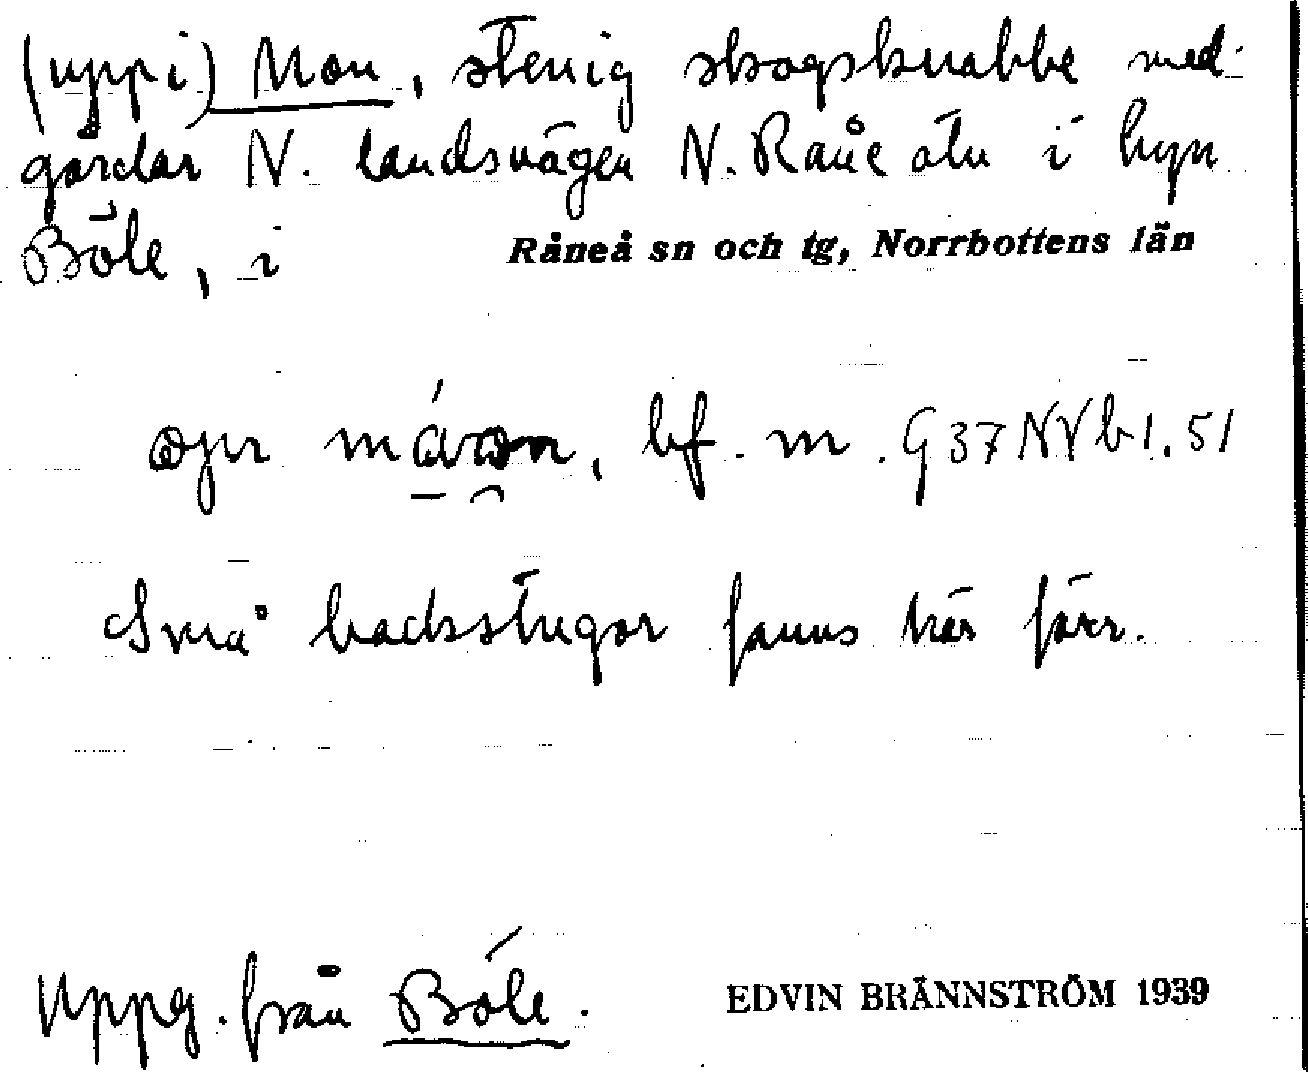 (uppi) Mon, stenig skogsknabbe med
gårdar N. landsvägen N. Råne älv i byn
Böle, i Råneå sn och tg, Norrbottens län
måvan, bf. m. G37NVb1.51
Små backstugor fanns här förr.
Uppg. från Böle. EDVIN BRÄNNSTRÖM 1939